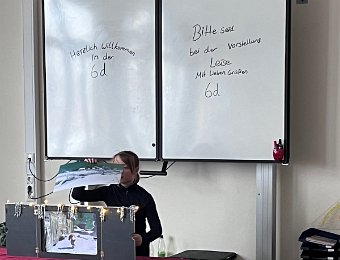 Herzlich willkommen
in der
6d
Bitte seid
bei der Vorstellung
Leise
Mit lieben Grüßen
6d